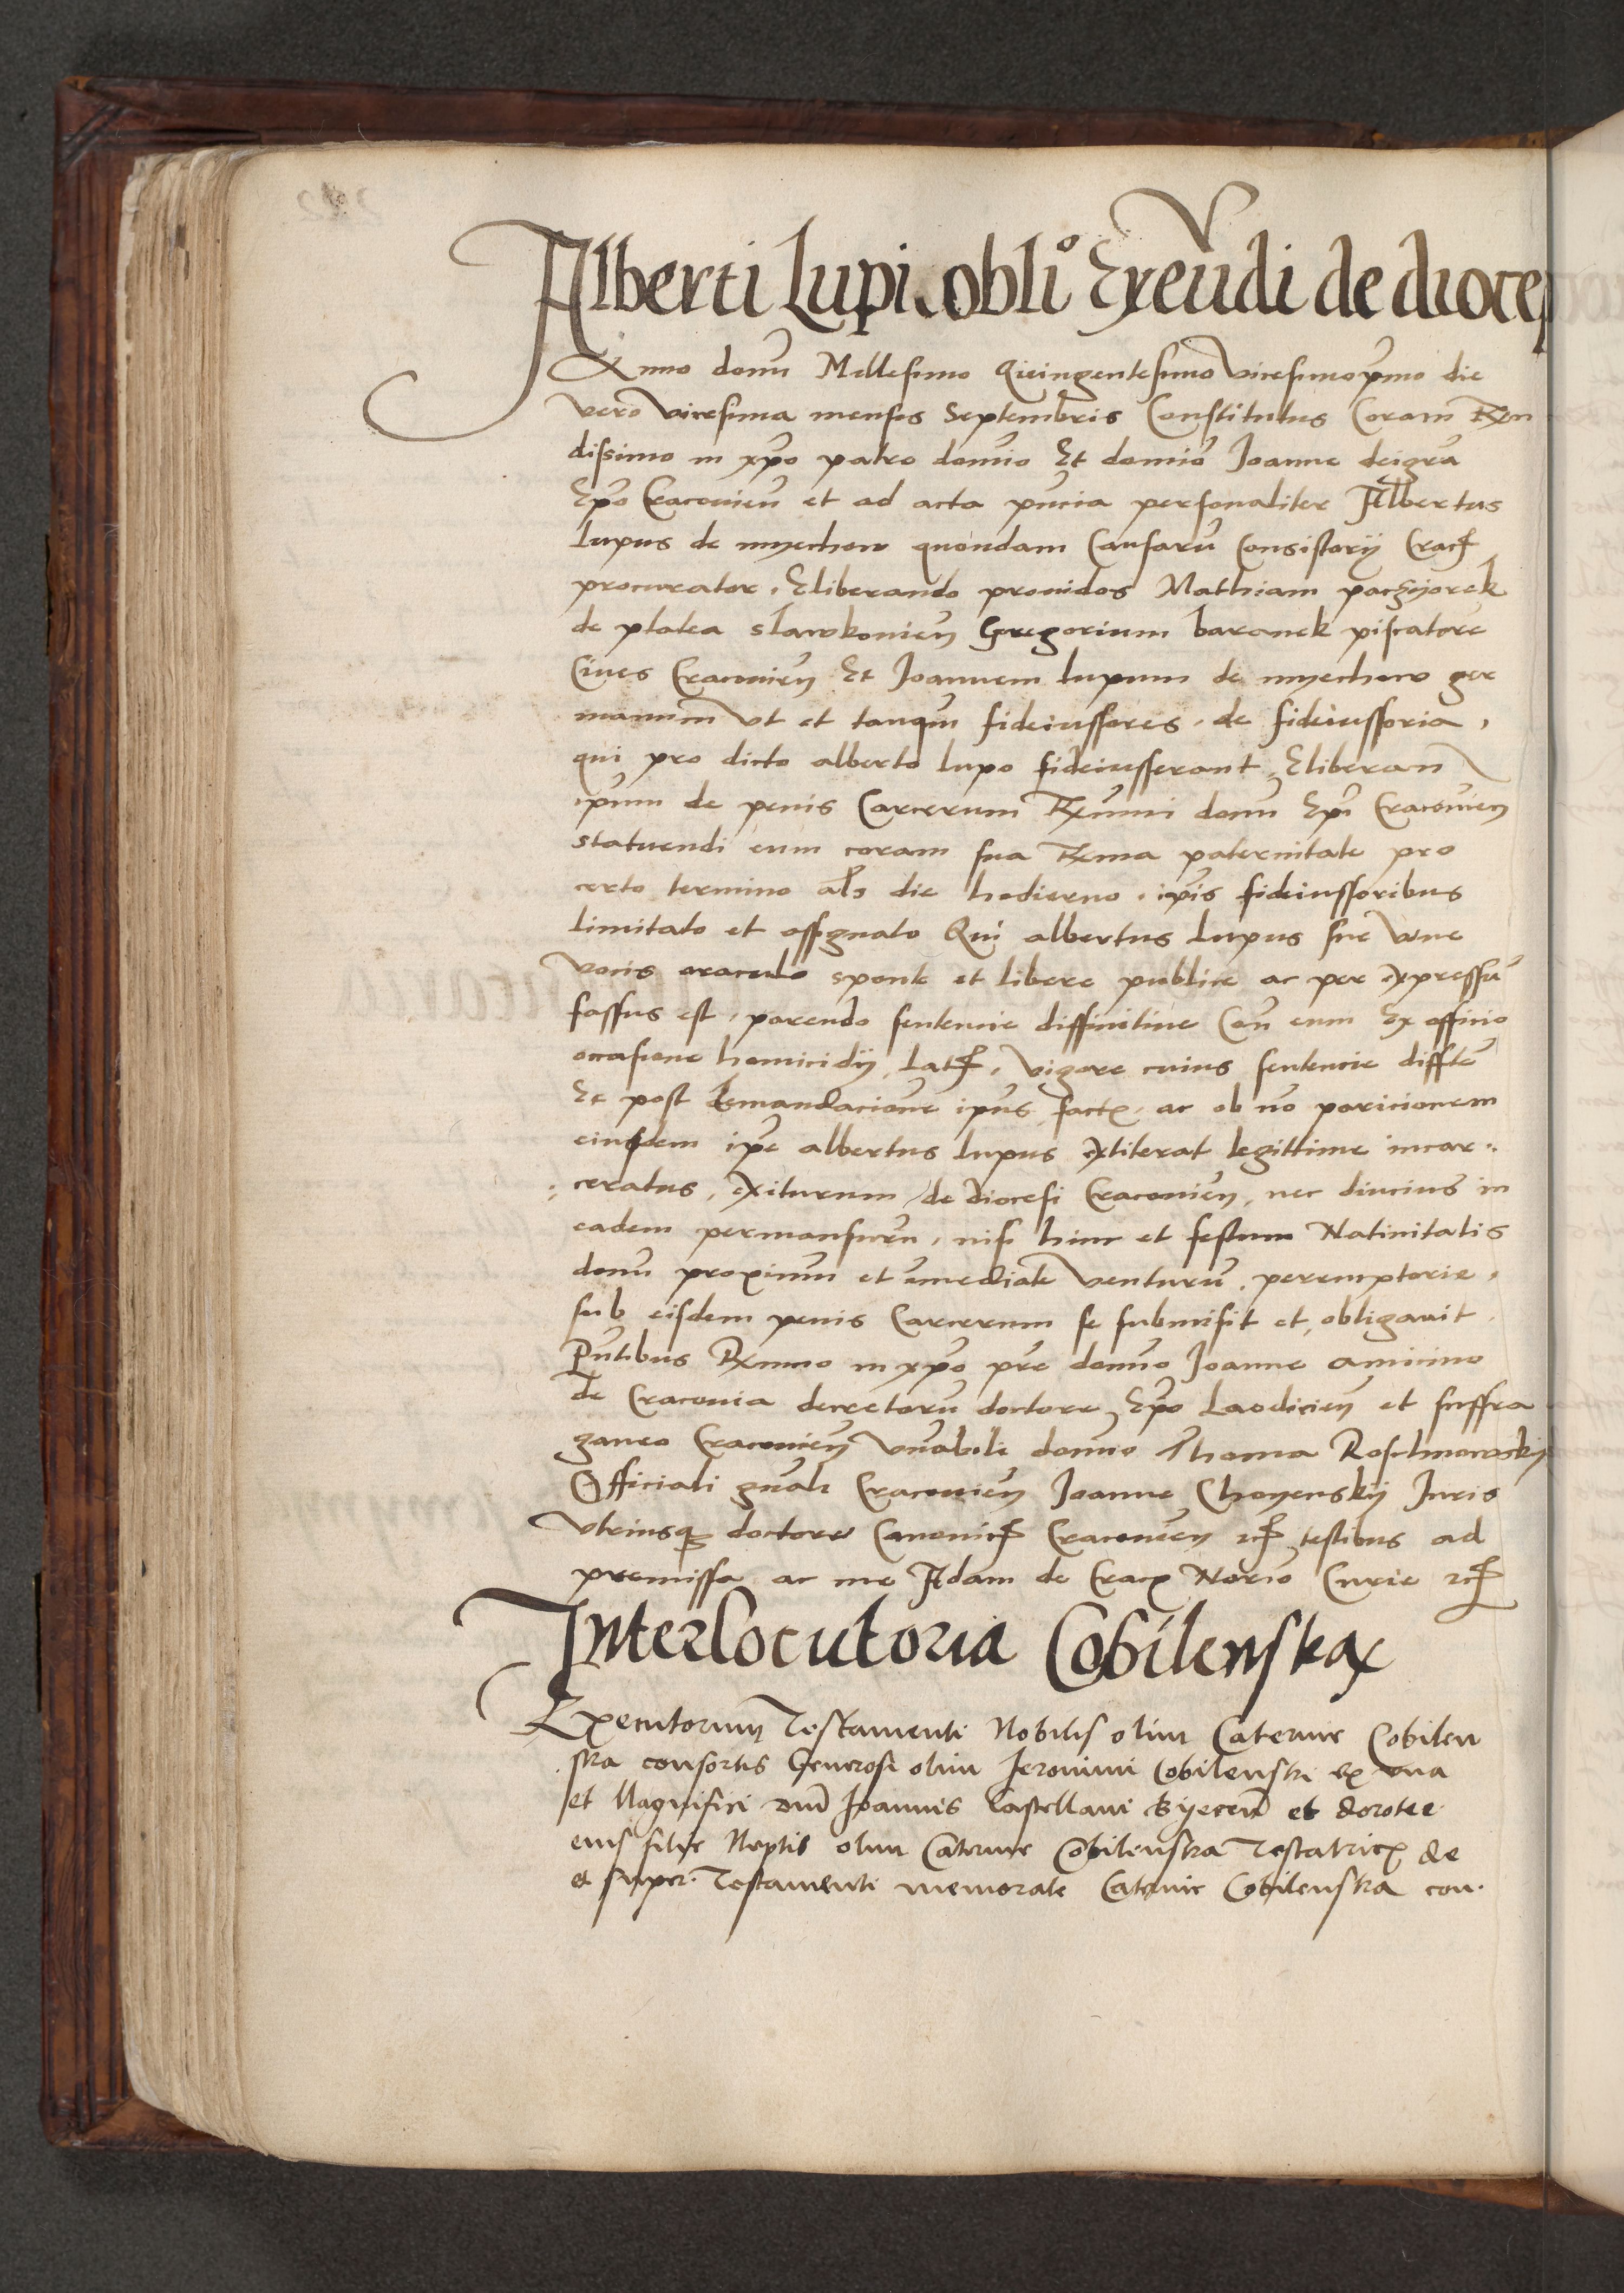 Alberti Lupi obliº Exeūdi de dioces
Anno domī Millesimo Quingentesimo vicesimopͫo die
vero vicesima mensis Septembris Constitutus Coram Rͫen
dissimo in xp̄o patre domīo Et domīo Joanne deigr̄a
Ep̄o Cracovien̄ et ad acta pn̄cia personaliter Albertus
Lupus de myechow quondam Causarū Consistorij Crac
procurator, Eliberando providos Mathiam paczyorek
de platea slawkovien̄ Gregorium baranek piscatorē
Cives Cracovien̄ Et Joannem Lupum de myechow ger
manum ut et tanqͫ fideiussores, de fideiussoria,
qui pro dicto alberto lupo fideiusserant, Eliberan
ip̄um de penis Carcerum Rx̄mi domī Ep̄i Cracovien̄
statuendi eum coram sua Rͫema paternitate pro
certo termino als die hodierno, ip̄is fideiussoribus
limitato et assignato Qui albertus Lupus sue vive
vocis oraculo sponte et libere publice ac per expressū
fassus est, parendo sentencie diffinitive Con̄ eum Ex officio
occasione homicidij lat, vigore cuius sentencie diffi̅te
Et post demandacionē ip̄ius fact, ac ob nō paricionem
eiusdem ip̄e albertus lupus extiterat legittime incar:
:ceratus, exiturum de diocesi Cracovien̄, nec diucius in
eadem permansurū, nisi hinc et festum Nativitatis
domī proximū et immediate venturū, peremptorie,
sub eisdem penis Carcerum se submisit et obligavit.
Pn̄tibus Rx̄mo in xp̄o pr̄e domīo Joanne amicino
de Cracovia decretorū doctore, Ep̄o Laodicien̄ et suffra
ganeo Cracovien̄ Vn̄abili domīo Thoma Roschnowsky
Officiali gn̄ali Cracovien̄ Joanne Choyenskij Juris
utriusq doctore Canonic Cracovien̄ etc testibus ad
premissa ac me Adam de Crac Notrio Curie etc
Interlocutoria Cobilenska
Executorum Testamenti Nobilis olim Caterine Cobilen
ska consortis Generosi olim Jeronimi Cobilenski ex una
et Magnifici dnī Joannis Castellani Byecen̄ et dorotee
eius filie Neptis olim Caterine Cobilenska Testatric de
et super Testamenti memorate Caterine Cobilenska con.